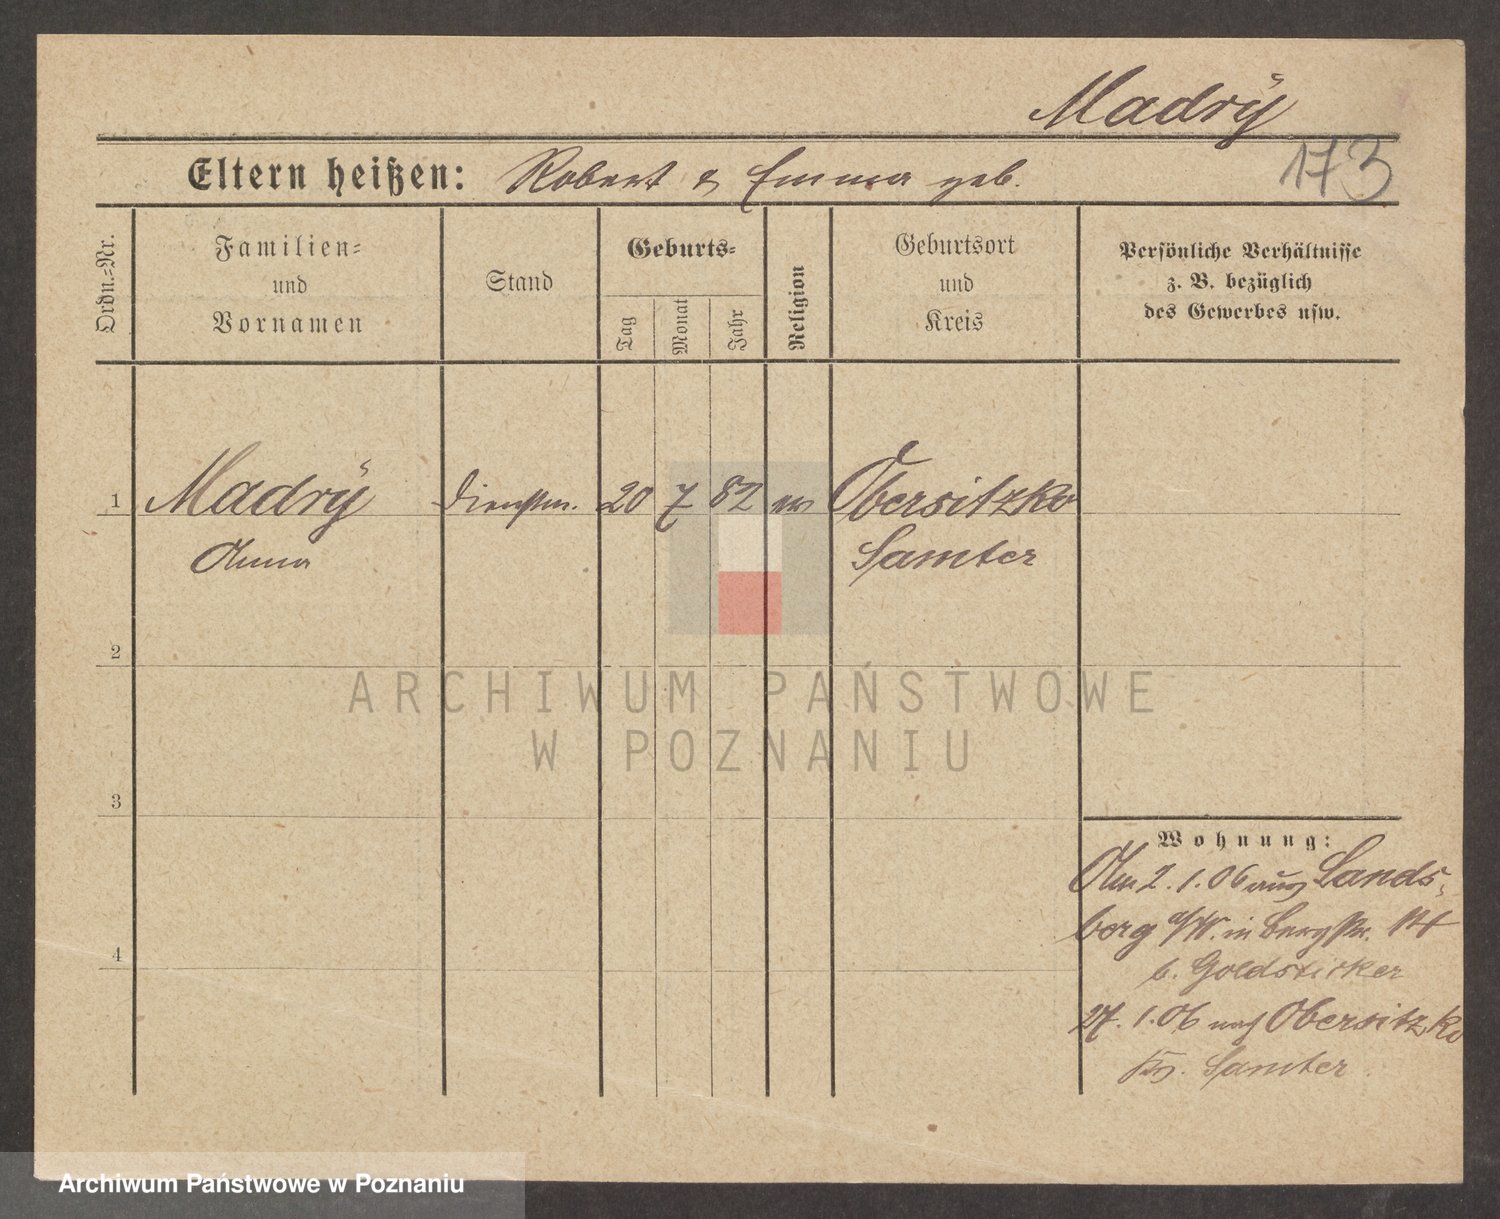 Madrÿ
173
Eltern heißen: Robert & Emma geb.
Ordn.=Nr.
Familien=
und
Vornamen
Stand
Geburts=
Tag
Monat
Jahr
Religion
Geburtsort
und
Kreis
Persönliche Verhältnisse
z. B. bezüglich
des Gewerbes usw.
1 Madrÿ Dienstm. 20 7 82 ev Obersitzko
Anna Samter
2
ARCHIWUM PAŃSTWOWE
W POZNANIU
3
Wohnung:
2.1.06 aus Lands-
berg a/W. in Bergstr. 14
b. Goldsticker
27.1.06 nach Obersitzko
Krs. Samter
4
Archiwum Państwowe w Poznaniu